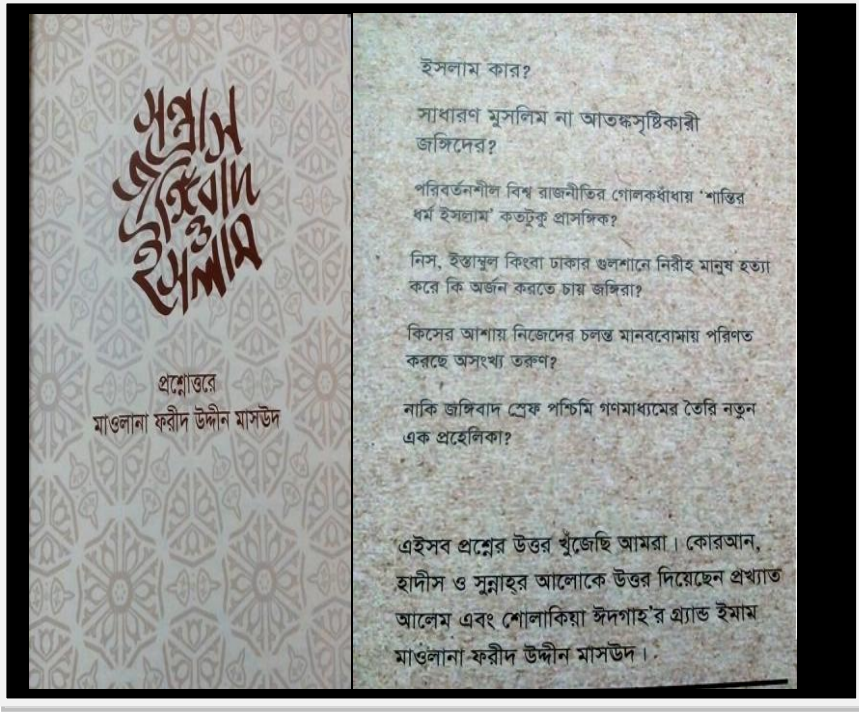 সন্ত্রাস
জঙ্গিবাদ
ও
ইসলাম
প্রশ্নোত্তরে
মাওলানা ফরীদ উদ্দীন মাসঊদ
ইসলাম কার?
সাধারণ মুসলিম না আতঙ্কসৃষ্টিকারী
জঙ্গিদের?
পরিবর্তনশীল বিশ্ব রাজনীতির গোলকধাঁধায় 'শান্তির
ধর্ম ইসলাম' কতটুকু প্রাসঙ্গিক?
নিস, ইস্তাম্বুল কিংবা ঢাকার গুলশানে নিরীহ মানুষ হত্যা
করে কি অর্জন করতে চায় জঙ্গিরা?
কিসের আশায় নিজেদের চলন্ত মানববোমায় পরিণত
করছে অসংখ্য তরুণ?
নাকি জঙ্গিবাদ স্রেফ পশ্চিমি গণমাধ্যমের তৈরি নতুন
এক প্রহেলিকা?
এইসব প্রশ্নের উত্তর খুঁজেছি আমরা। কোরআন,
হাদীস ও সুন্নাহর আলোকে উত্তর দিয়েছেন প্রখ্যাত
আলেম এবং শোলাকিয়া ঈদগাহ'র গ্র্যান্ড ইমাম
মাওলানা ফরীদ উদ্দীন মাসউদ।